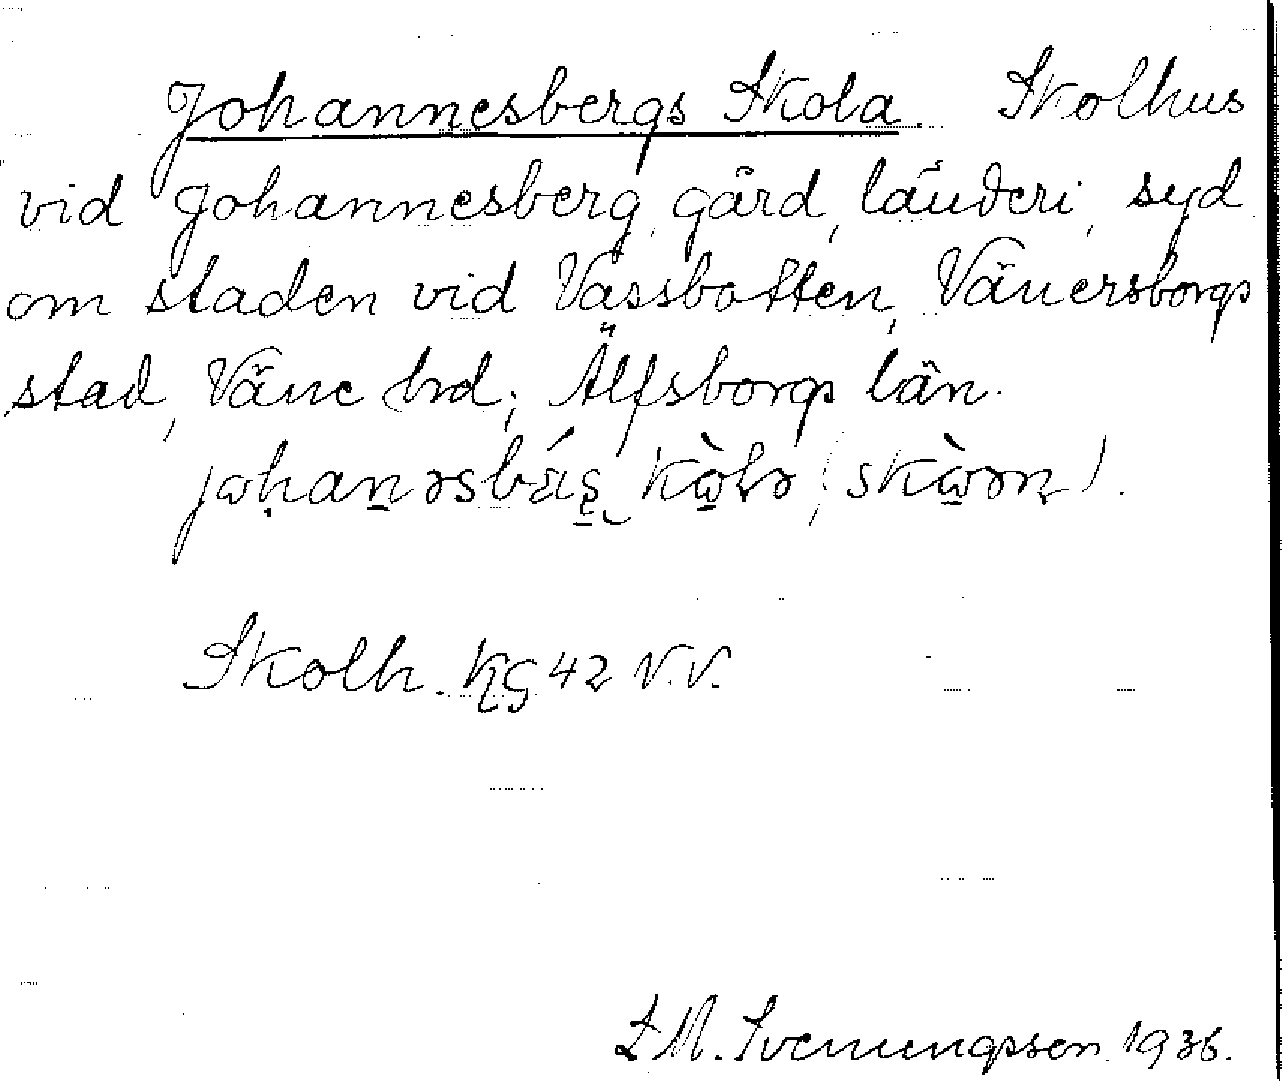 Johannesbergs Skola. Skolhus
vid Johannesberg, gård, länderi, syd
om staden vid Vassbotten, Vänersborgs
stad, Väne hd; Älfsborgs län.
( ).
Skolh. 42 N.V.
L M. Svenungsson 1936.